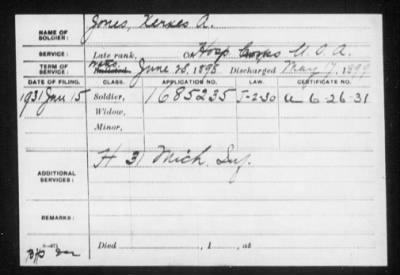 NAME OF SOLDIER: Jones, Xerxes A.
SERVICE: Late rank, Co. Hosp Corps U.S.A.
TERM OF SERVICE: Enlisted June 28, 1898 Discharged May 17, 1899
DATE OF FILING. CLASS. APPLICATION NO. LAW. CERTIFICATE NO.
1931 Jan 15 Soldier, 1685235 J-2-30 6-26-31
Widow,
Minor,
ADDITIONAL SERVICES: H 31 Mich. Inf.
REMARKS:
Died , 1 , at